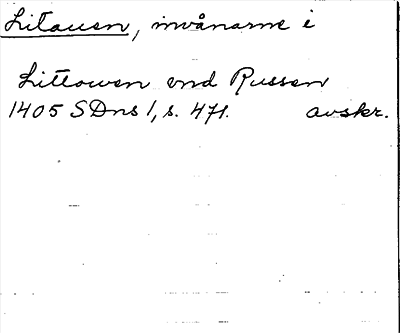 Litauen, invånarne i
Littowen end Russen
1405 SDns 1, s. 471. avskr.